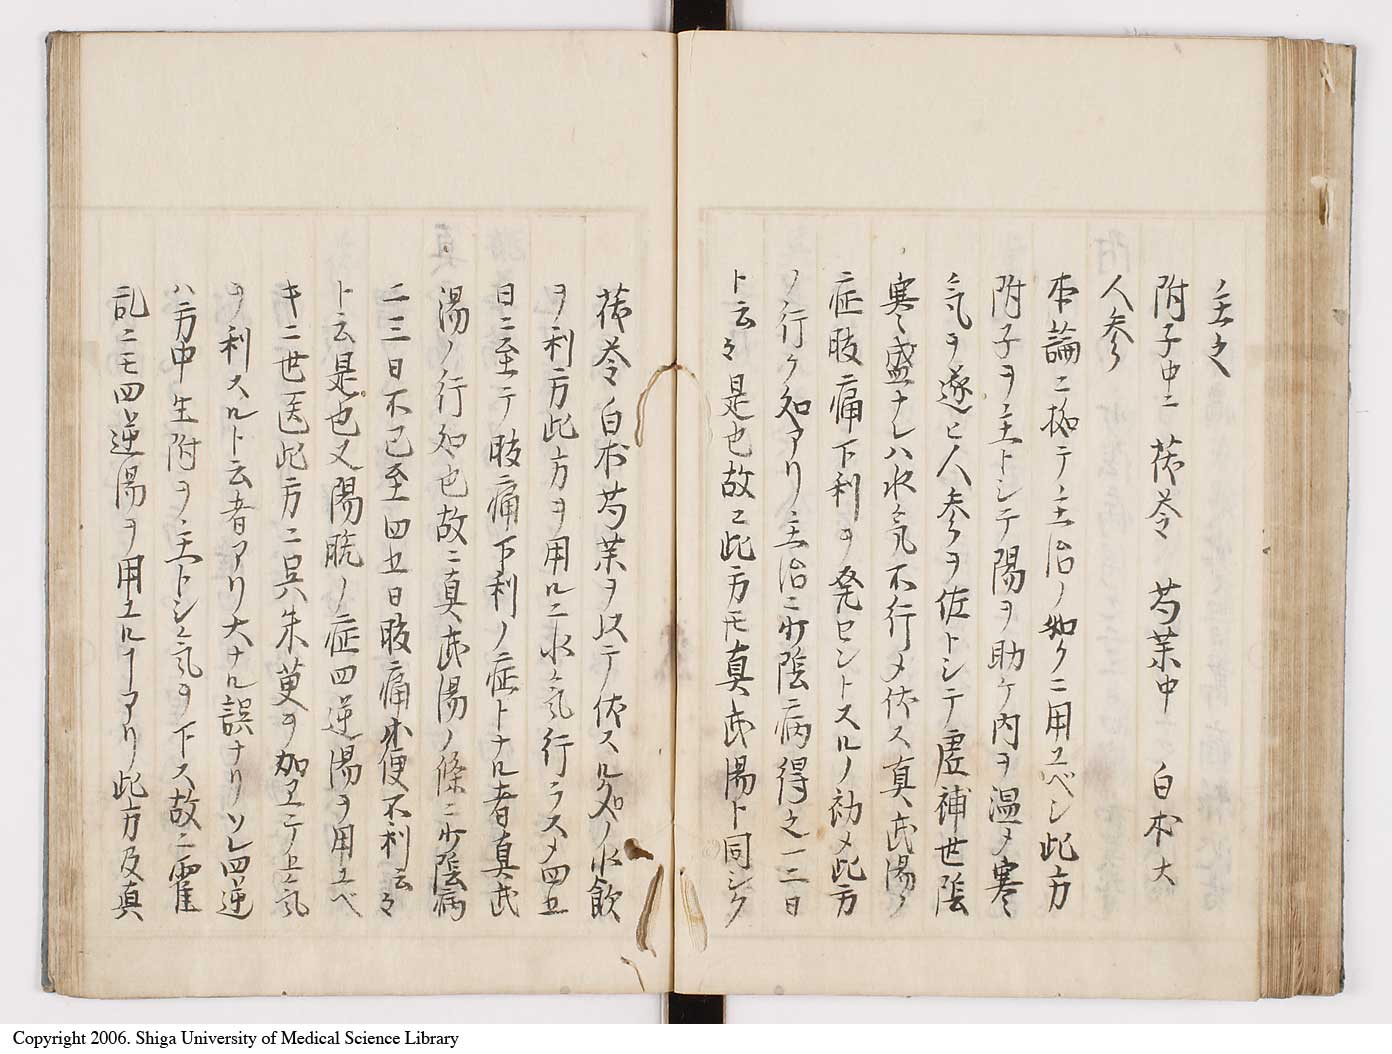 主之
附子中二 茯苓 芍薬中 白朮大
人参
本論ニ拠テ主治ノ如クニ用ユベシ此方
附子ヲ主トシテ陽ヲ助ケ内ヲ温メ寒
気ヲ逐ヒ人参ヲ佐トシテ虚補世陰
寒盛ナレハ水気不行メ依ス真武湯ノ
症腹痛下利ヲ発セントスルノ初メ此方
ノ行ク処アリ主治ニ少陰病得之一二日
ト云々是也故ニ此方モ真武湯ト同シク
茯苓白朮芍薬ヲ以テ佐スル処ノ水飲
ヲ利方此方ヲ用ルニ水気行ラスメ四五
日ニ至テ腹痛下利ノ症トナル者真武
湯ノ行処也故ニ真武湯ノ條ニ少陰病
二三日不已至四五日腹痛小便不利云々
ト云是也又陽脱ノ症四逆湯ヲ用ユベ
キニ世医此方ニ呉朱萸ヲ加エテ上気
ヲ利スルト云者アリ大ナル誤ナリソレ四逆
ハ方中生附ヲ主トシ気ヲ下ス故ニ霍
乱ニモ四逆湯ヲ用ユルヿアリ此方及真
Copyright 2006. Shiga University of Medical Science Library